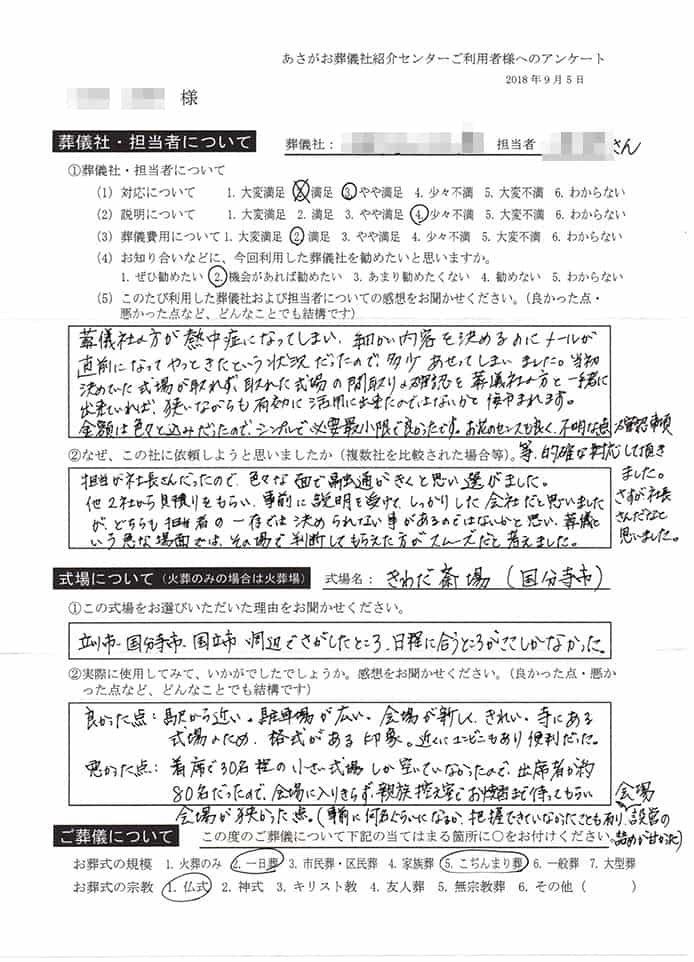 あさがお葬儀社紹介センターご利用者様へのアンケート
2018年9月5日
様
葬儀社・担当者について
葬儀社： 担当者 さん
①葬儀社・担当者について
(1) 対応について 1. 大変満足 2. 満足 3. やや満足 4. 少々不満 5. 大変不満 6. わからない
(2) 説明について 1. 大変満足 2. 満足 3. やや満足 4. 少々不満 5. 大変不満 6. わからない
(3) 葬儀費用について 1. 大変満足 2. 満足 3. やや満足 4. 少々不満 5. 大変不満 6. わからない
(4) お知り合いなどに、今回利用した葬儀社を勧めたいと思いますか。
1. ぜひ勧めたい 2. 機会があれば勧めたい 3. あまり勧めたくない 4. 勧めない 5. わからない
(5) このたび利用した葬儀社および担当者についての感想をお聞かせください。（良かった点・
悪かった点など、どんなことでも結構です）
葬儀社の方が熱中症になってしまい、細かい内容を決めるのにメールが
直前になってやっときたという状況だったので、多少あせってしまいました。当初
決めていた式場が取れず、取れた式場の間取りの確認を葬儀社の方と一緒に
出来ていれば、狭いながらも有効に活用出来たのではないかと悔やまれます。
金額は色々と込みだったので、シンプルで必要最小限で良かったです。お花のセンスも良く、不明な点や確認事項
等、的確な対応して頂き
ました。
さすが社長
さんだなと
思いました。
②なぜ、この社に依頼しようと思いましたか（複数社を比較された場合等）。
担当が社長さんだったので、色々な面で融通がきくと思い選びました。
他2社から見積りをもらい、事前に説明を受けて、しっかりした会社だと思いました
が、どちらも担当者の一存では決められない事があるのではないかと思い、葬儀と
いう急な場面では、その場で判断してもらえた方がスムーズだと考えました。
式場について（火葬のみの場合は火葬場）
式場名： きわだ斎場（国分寺市）
①この式場をお選びいただいた理由をお聞かせください。
立川市、国分寺市、国立市周辺でさがしたところ、日程に合うところがここしかなかった。
②実際に使用してみて、いかがでしたでしょうか。感想をお聞かせください。（良かった点・悪か
った点など、どんなことでも結構です）
良かった点：駅から近い。駐車場が広い。会場が新しく、きれい。寺にある
式場のため、格式がある印象。近くにコンビニもあり便利だった。
悪かった点：着席で30名程の小さい式場しか空いていなかったので、出席者が約
80名だったので、会場に入りきらず、親族控え室でお焼香まで待ってもらい
会場が狭かった点。（事前に何名ぐらいになるか、把握できていなかったことも有り、会場設営の
詰めが甘かった）
ご葬儀について
この度のご葬儀について下記の当てはまる箇所に○をお付けください。
お葬式の規模 1. 火葬のみ 2. 一日葬 3. 市民葬・区民葬 4. 家族葬 5. こぢんまり葬 6. 一般葬 7. 大型葬
お葬式の宗教 1. 仏式 2. 神式 3. キリスト教 4. 友人葬 5. 無宗教葬 6. その他（ ）